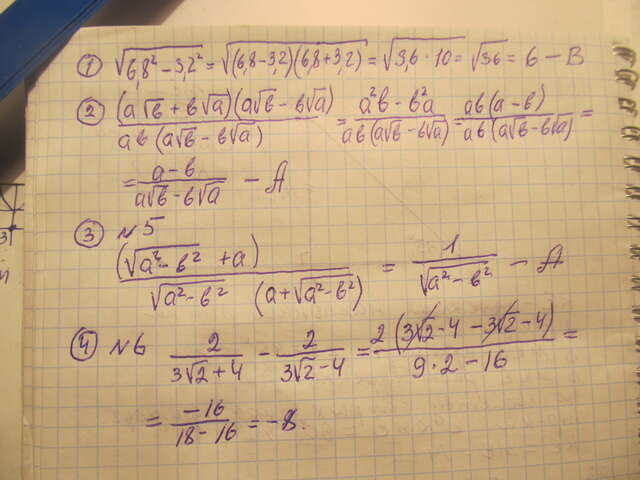 ① √(6,8² − 3,2²) = √((6,8−3,2)(6,8+3,2)) = √(3,6 · 10) = √36 = 6 − В
② (a√в + в√a)(a√в − в√a) / aв(a√в − в√a) = (a²в − в²a) / aв(a√в − в√a) = aв(a − в) / aв(a√в − в√a) =
= (a − в) / (a√в − в√a) − А
③ №5
(√(a² − в²) + a) / √(a² − в²) (a + √(a² − в²)) = 1 / √(a² − в²) − А
④ №6 2 / (3√2 + 4) − 2 / (3√2 − 4) = 2(3√2 − 4 − 3√2 − 4) / (9·2 − 16) =
= −16 / (18 − 16) = −8.